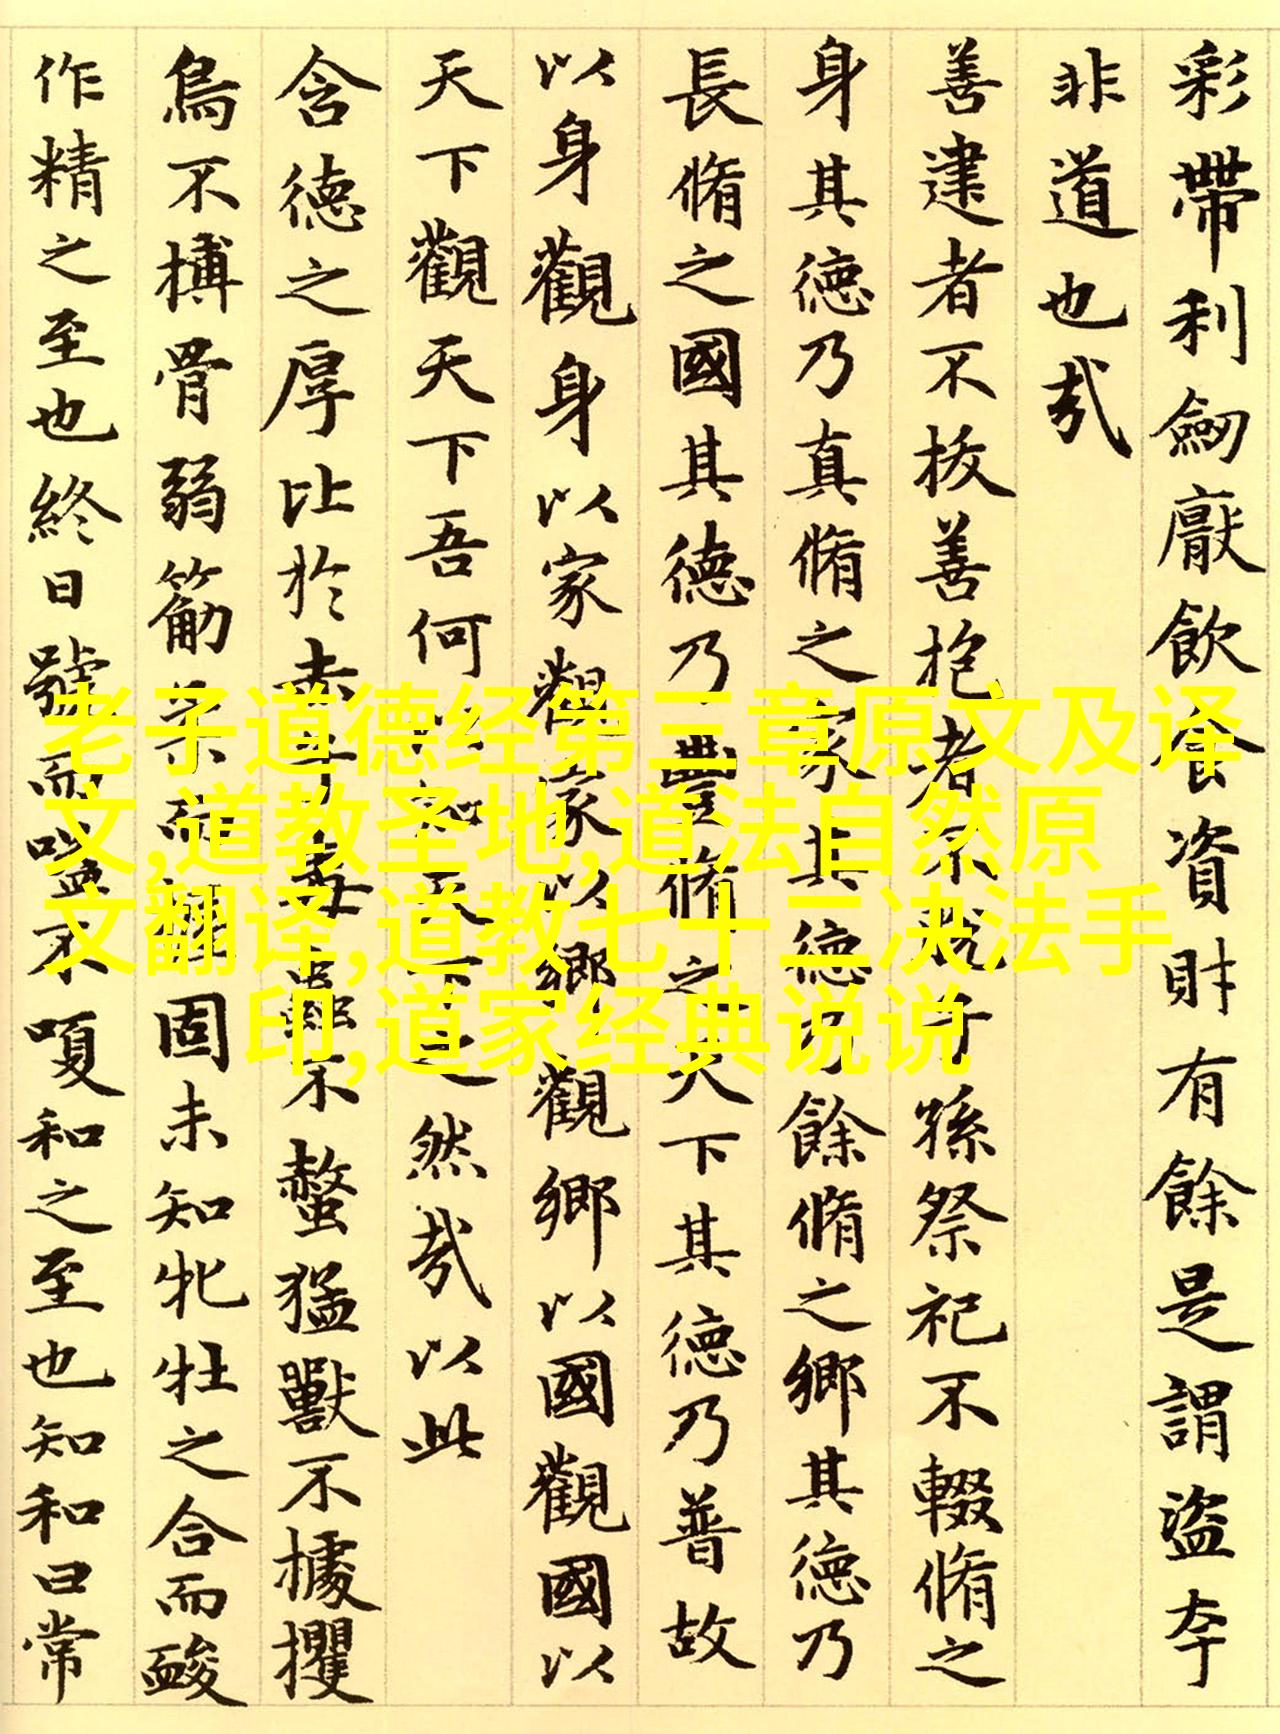 彩帶利劔厭飲食資財有餘是謂盜夸
非道也㢤
善建者不拔善抱者不脫子孫祭祀不輟脩之
身其德乃真脩之家其德乃餘脩之鄉其德乃
長脩之國其德乃豐脩之天下其德乃普故
以身觀身以家觀家以鄉觀鄉以國觀國以
天下觀天下吾何以知天下之然㢤以此
含德之厚比於赤子毒蟲不螫猛獸不據攫
鳥不搏骨弱筋柔而握固未知牝牡之合而酸
作精之至也終日號而嗌不嗄和之至也知和曰常
老子道德经第三章原文及译
文,道教圣地,道法自然原
文翻译,道教七十二决法手
印,道家经典说说